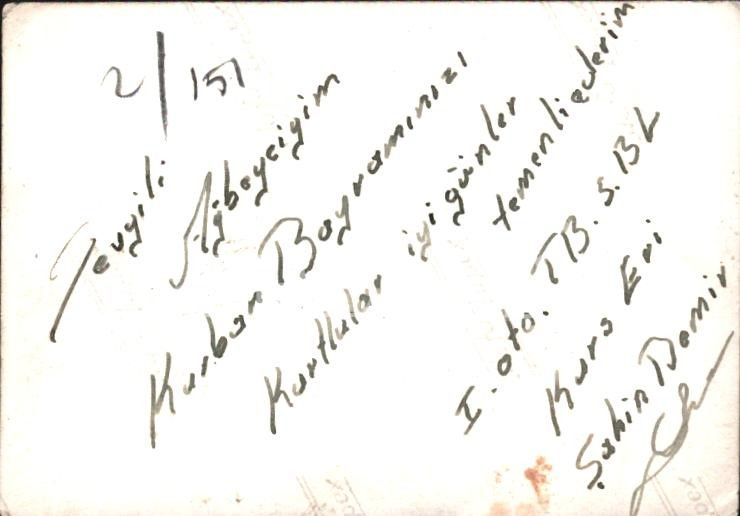 2/151
Sevgili
Ağbeyciğim
Kurban Bayramınızı
Kurtlular iyi günler
temenliederim
I. oto. TB. S. BL
Kurs Eri
Şahin Demir